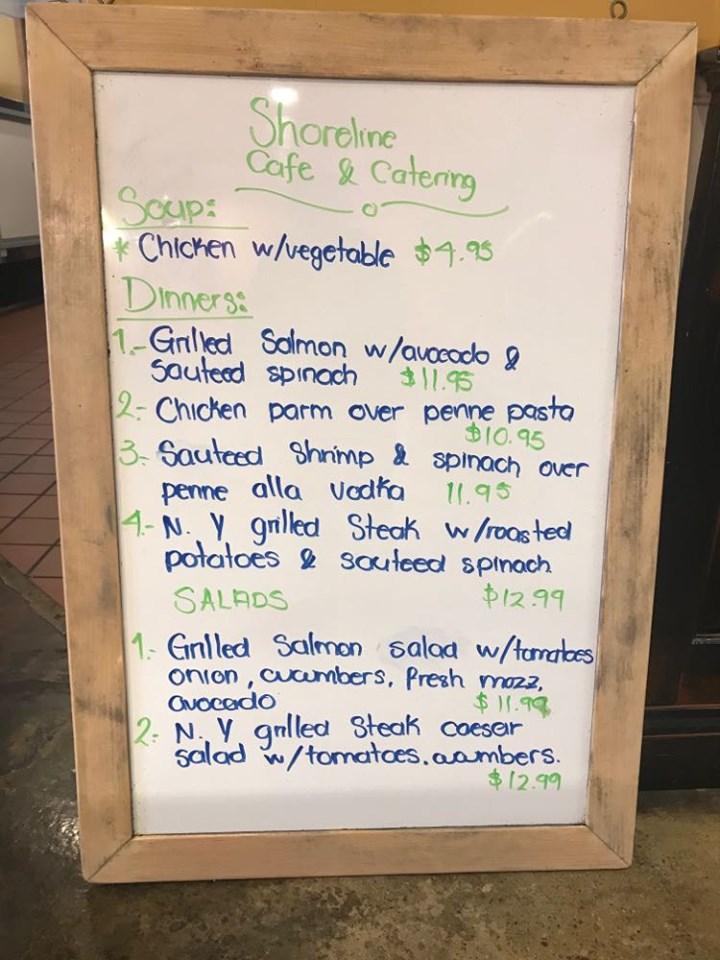 Shoreline
Cafe & Catering
Soup:
* Chicken w/vegetable $4.95
Dinners:
1.- Grilled Salmon w/avocado &
Sauteed spinach $11.95
2.- Chicken parm over penne pasta
$10.95
3.- Sauteed Shrimp & spinach over
penne alla vodka 11.95
4.- N.Y grilled Steak w/roasted
potatoes & sauteed spinach
SALADS $12.99
1.- Grilled Salmon salad w/tomatoes
onion, cucumbers, fresh mozz,
avocado $11.99
2.- N.Y grilled Steak caesar
salad w/tomatoes, cucumbers.
$12.99